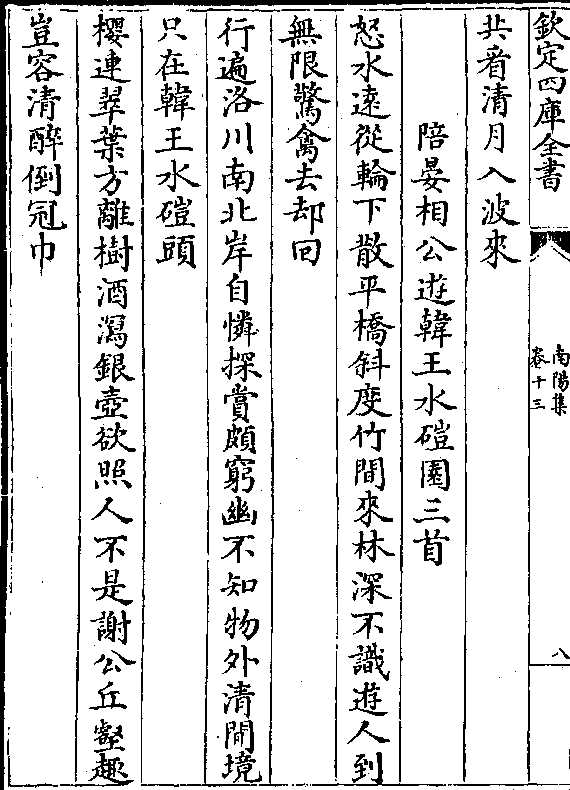 欽定四庫全書
南陽集
卷十三
八
共看清月入波來
陪晏相公遊韓王水磑園三首
怒水遠從輪下散平橋斜度竹間來林深不識遊人到
無限驚禽去却回
行遍洛川南北岸自憐探賞頗窮幽不知物外清閒境
只在韓王水磑頭
櫻連翠葉方離樹酒瀉銀壺欲照人不是謝公丘壑趣
豈容清醉倒冠巾